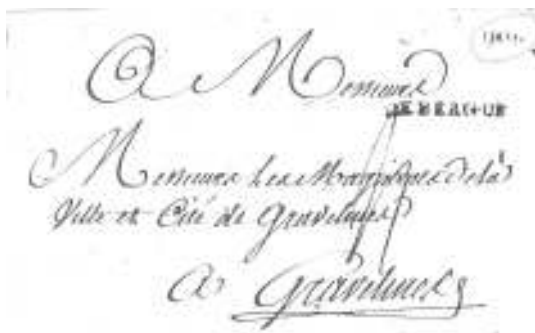 A Messieurs
DE BERGUE
Messieurs Les Magistrats de la
Ville et Cité de Gravelines
A Gravelines